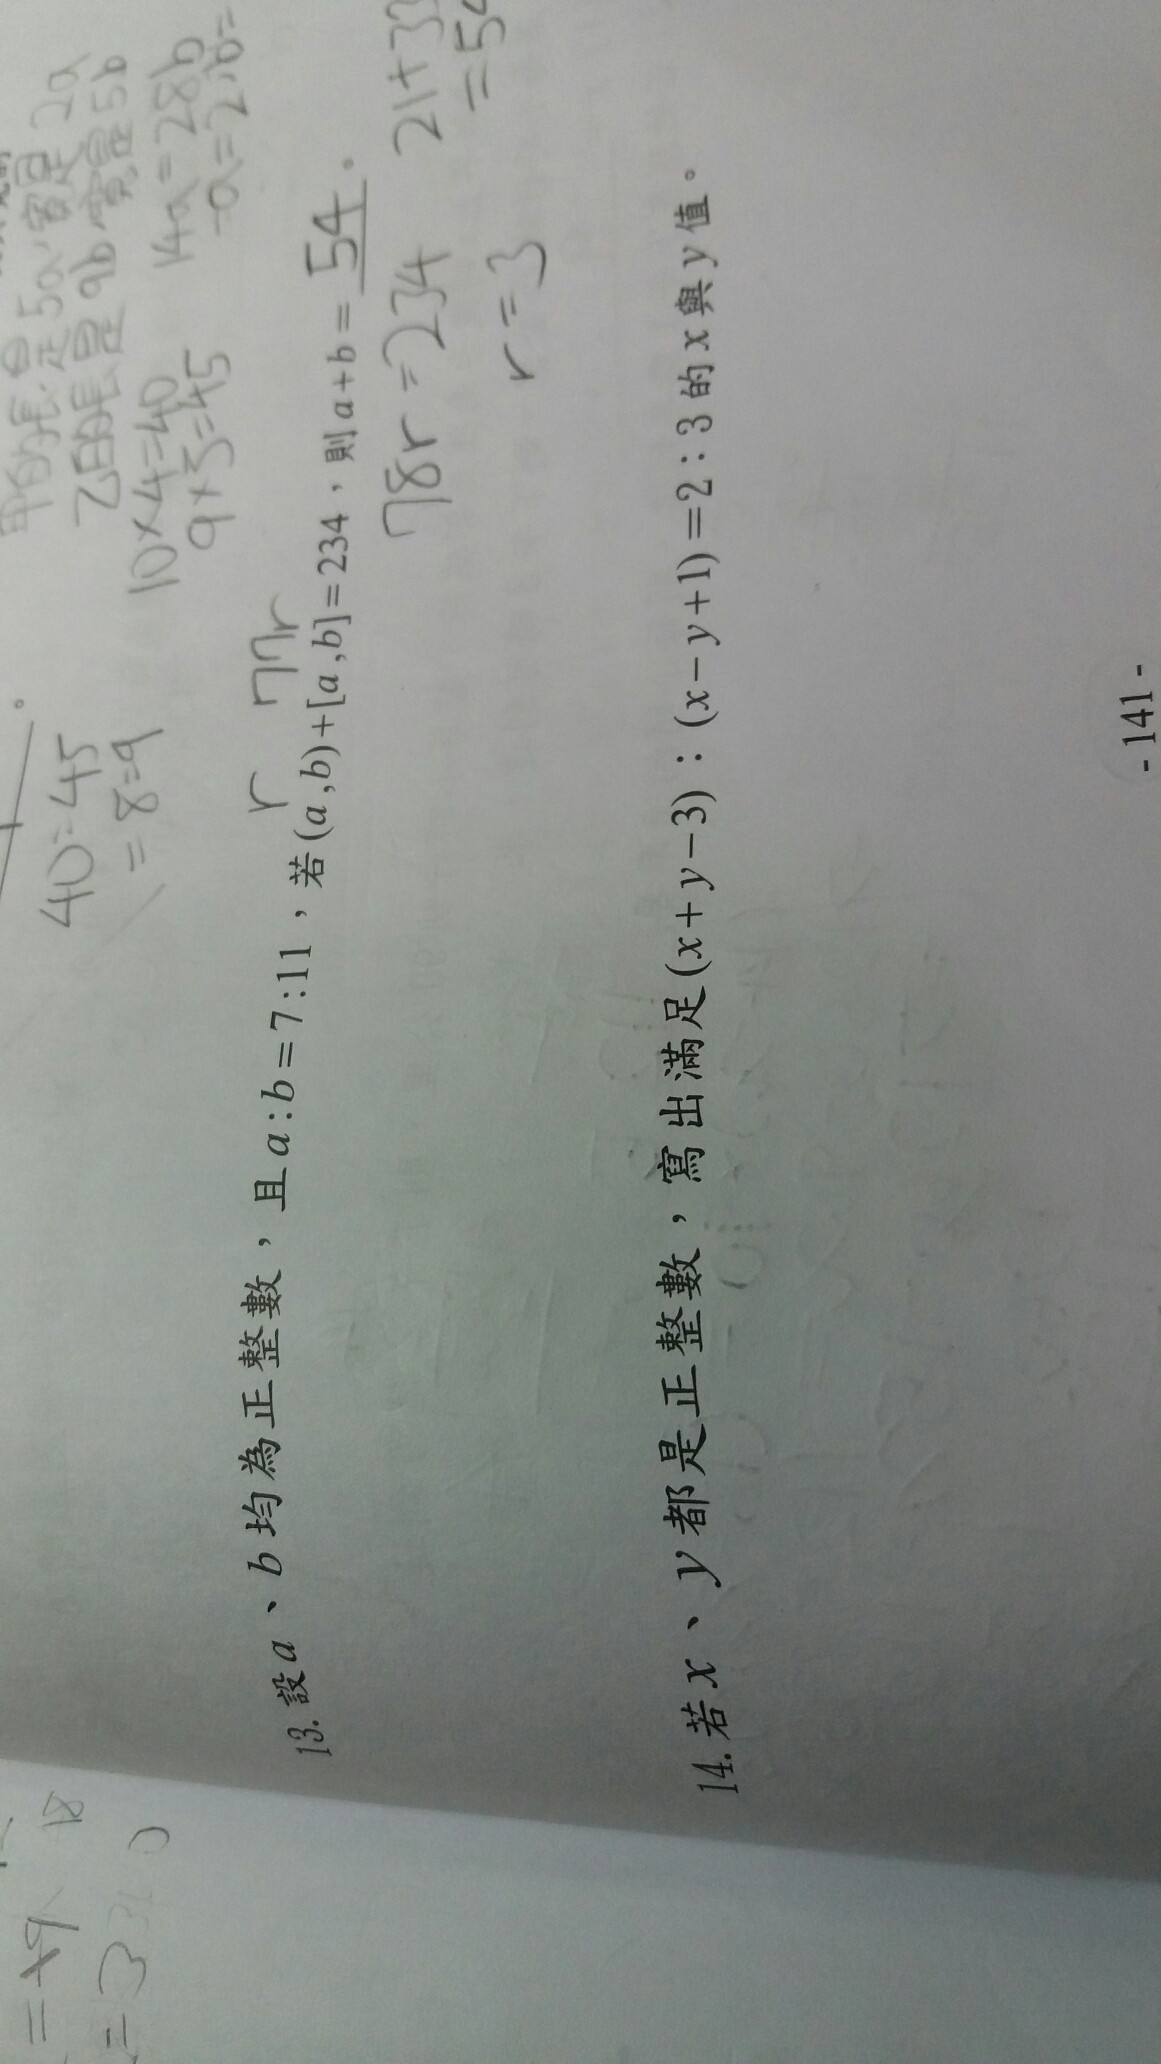 寬是2a
乙的長是9b 寬是5b
10×4=40 14a=28b
9×5=45
40:45
=8:9
r 77r
13. 設a、b均為正整數，且a:b=7:11，若(a,b)+[a,b]=234，則a+b=54。
78r=234 21+33
=54
r=3
14. 若x、y都是正整數，寫出滿足(x+y−3):(x−y+1)=2:3的x與y值。
- 141 -